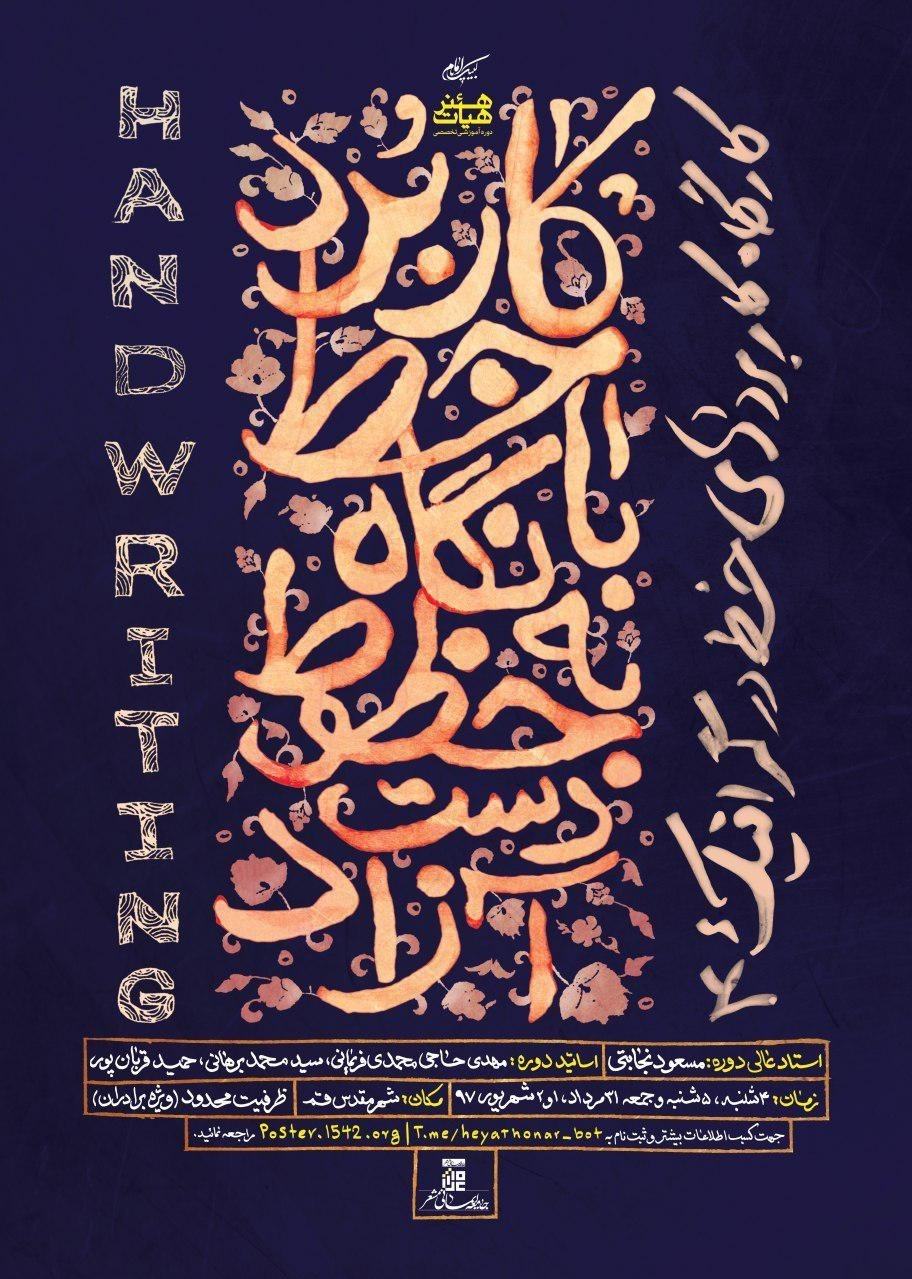 لبیک یا امام
هیات هنر
دوره آموزشی تخصصی
کاربرد
خط
با نگاه
به خطوط
دست
آزاد
و
HANDWRITING
کارگاه کاربردی خط در گرافیک ۴
استاد عالی دوره: مسعود نجابتی
اساتید دوره: مهدی حاجی محمدی فریمانی، سید محمد برهانی، حمید قربان پور
زمان: ۴شنبه، ۵شنبه و جمعه ۳۱ مرداد، ۱و۲ شهریور ۹۷
مکان: شهر مقدس قم
ظرفیت محدود (ویژه برادران)
جهت کسب اطلاعات بیشتر و ثبت نام به Poster.1542.org | T.me/heyathonar_bot راجعه نمائید.